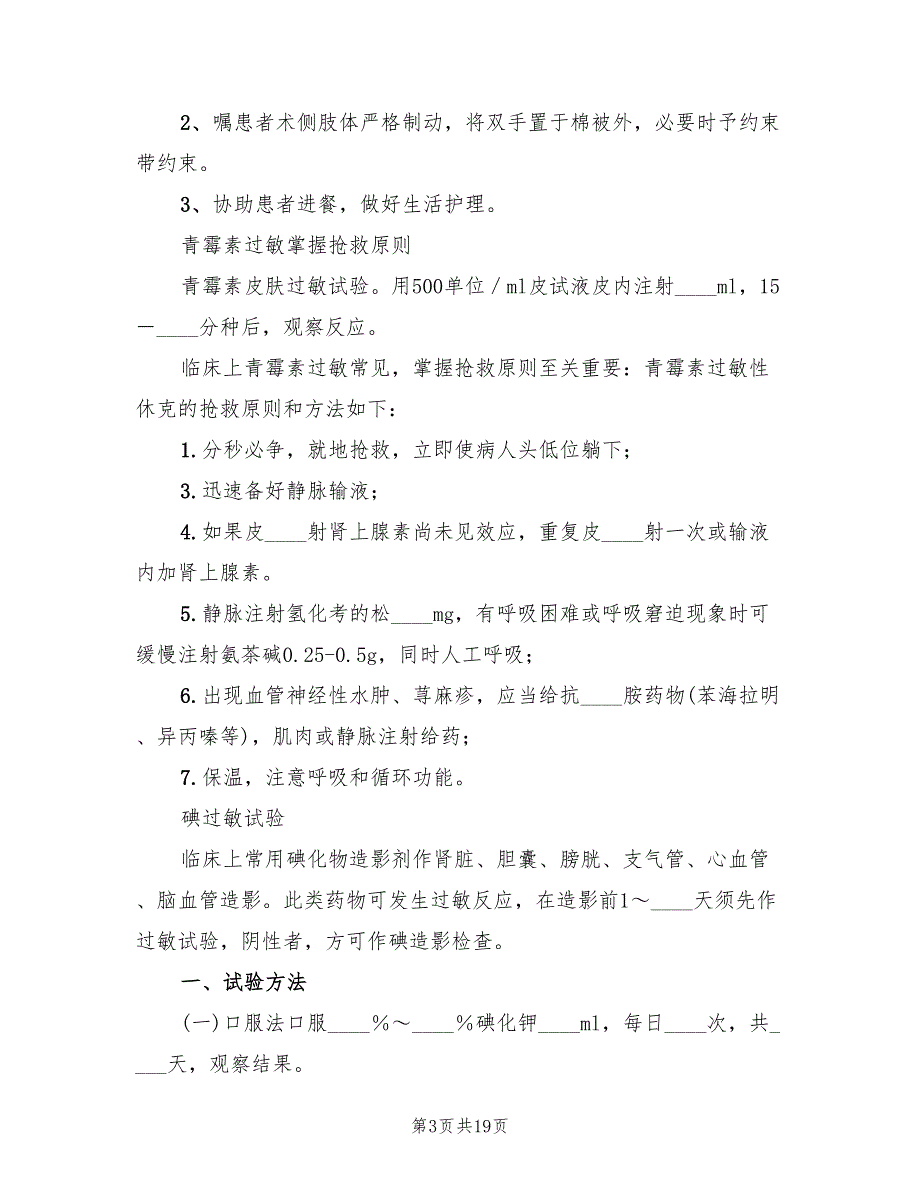 2、嘱患者术侧肢体严格制动，将双手置于棉被外，必要时予约束
带约束。
3、协助患者进餐，做好生活护理。
青霉素过敏掌握抢救原则
青霉素皮肤过敏试验。用500单位／ml皮试液皮内注射____ml，15
－____分种后，观察反应。
临床上青霉素过敏常见，掌握抢救原则至关重要：青霉素过敏性
休克的抢救原则和方法如下：
1.分秒必争，就地抢救，立即使病人头低位躺下；
3.迅速备好静脉输液；
4.如果皮____射肾上腺素尚未见效应，重复皮____射一次或输液
内加肾上腺素。
5.静脉注射氢化考的松____mg，有呼吸困难或呼吸窘迫现象时可
缓慢注射氨茶碱0.25-0.5g，同时人工呼吸；
6.出现血管神经性水肿、荨麻疹，应当给抗____胺药物(苯海拉明
、异丙嗪等)，肌肉或静脉注射给药；
7.保温，注意呼吸和循环功能。
碘过敏试验
临床上常用碘化物造影剂作肾脏、胆囊、膀胱、支气管、心血管
、脑血管造影。此类药物可发生过敏反应，在造影前1～____天须先作
过敏试验，阴性者，方可作碘造影检查。
一、试验方法
(一)口服法口服____％～____％碘化钾____ml，每日____次，共_
___天，观察结果。
第3页共19页